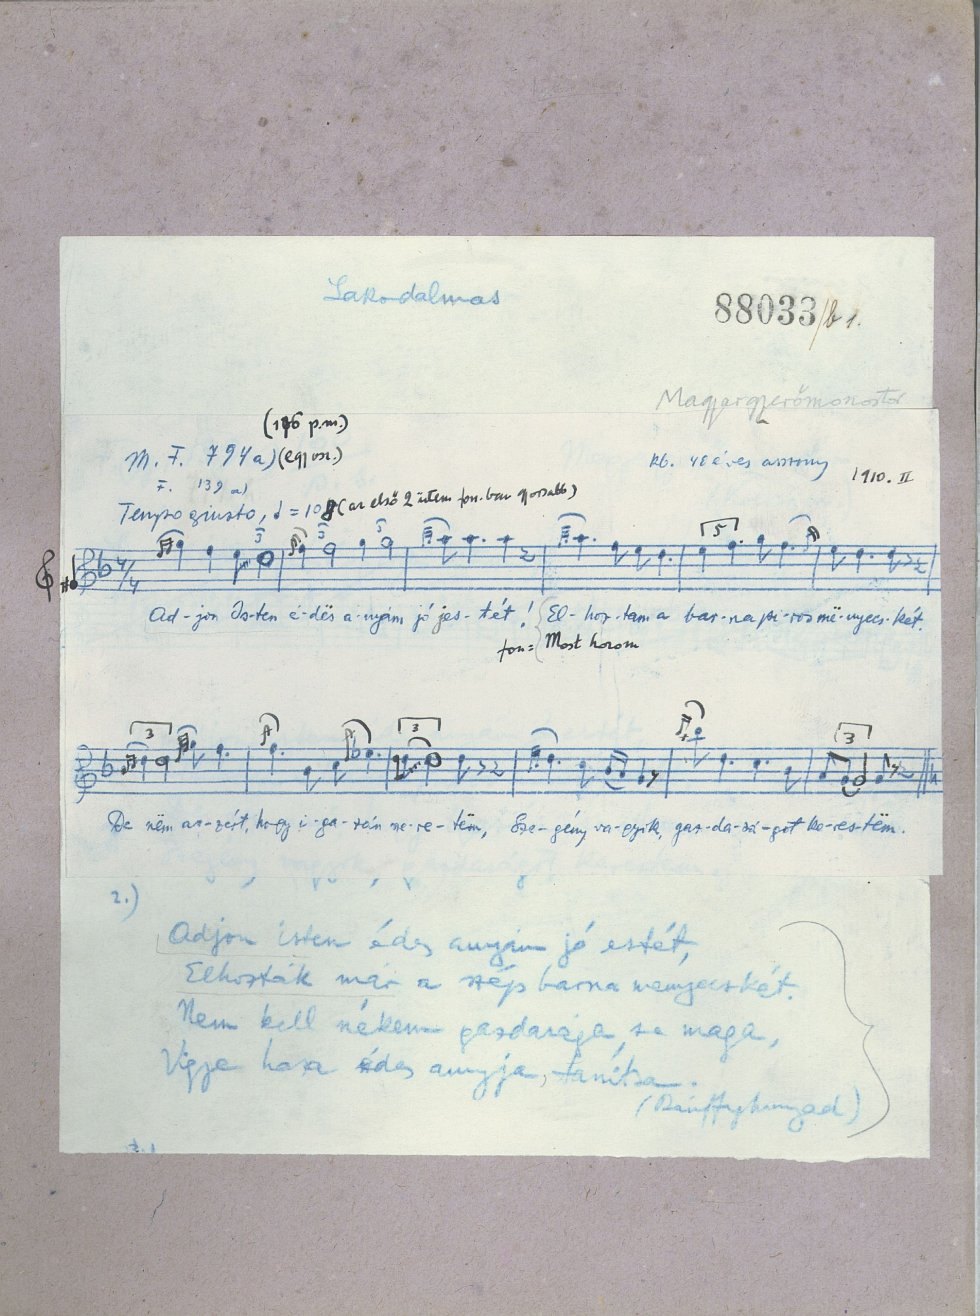 Lakodalmas
88033/b 1.
Magyargyerőmonostor
(176 p.m.)
M. F. 794a) (egy vsz.)
kb. 40 éves asszony
1910. II
F. 139 a)
Tempo giusto, = 108 (az első 2 ütem fon.-ban gyorsabb)
3 3 3 5
4/4
Ad-jon Is-ten é-dës a-nyám jó jes-tét! El-hoz-tam a bar-na pi-ros më-nyecs-két.
fon = Most hozom
3 3 3
De nëm az-zért, hogy i-ga-zán sze-re-tëm, Sze-gény va-gyok, gaz-da-sá-got ke-res-tëm.
2.)
Adjon isten édes anyám jó estét,
Elhozták már a szép barna menyecskét.
Nem kell nékem gazdasága, se maga,
Vigye haza édes anyja, tanítsa.
(Bánffyhunyad)